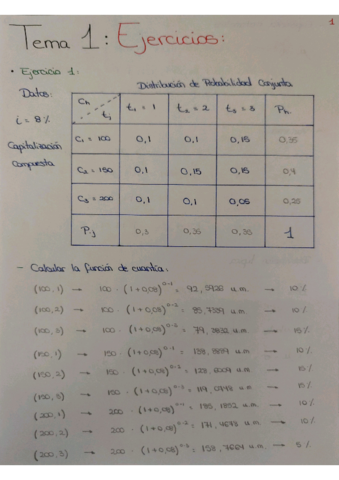 1
Tema 1: Ejercicios:
• Ejercicio 1:
Datos:
i = 8%
Capitalización
Compuesta
Distribución de Probabilidad Conjunta
Ch tj t1 = 1 t2 = 2 t3 = 3 Ph
C1 = 100 0,1 0,1 0,15 0,35
C2 = 150 0,1 0,15 0,15 0,4
C3 = 200 0,1 0,1 0,05 0,25
P.j 0,3 0,35 0,35 1
- Calcular la función de cuantía:
(100, 1) → 100 · (1+0,08)^0-1 = 92,5926 u.m. → 10%
(100, 2) → 100 · (1+0,08)^0-2 = 85,7339 u.m. → 10%
(100, 3) → 100 · (1+0,08)^0-3 = 79,3832 u.m. → 15%
(150, 1) → 150 · (1+0,08)^0-1 = 138,8889 u.m. → 10%
(150, 2) → 150 · (1+0,08)^0-2 = 128,6008 u.m. → 15%
(150, 3) → 150 · (1+0,08)^0-3 = 119,0748 u.m. → 15%
(200, 1) → 200 · (1+0,08)^0-1 = 185,1852 u.m. → 10%
(200, 2) → 200 · (1+0,08)^0-2 = 171,4678 u.m. → 10%
(200, 3) → 200 · (1+0,08)^0-3 = 158,7664 u.m. → 5%